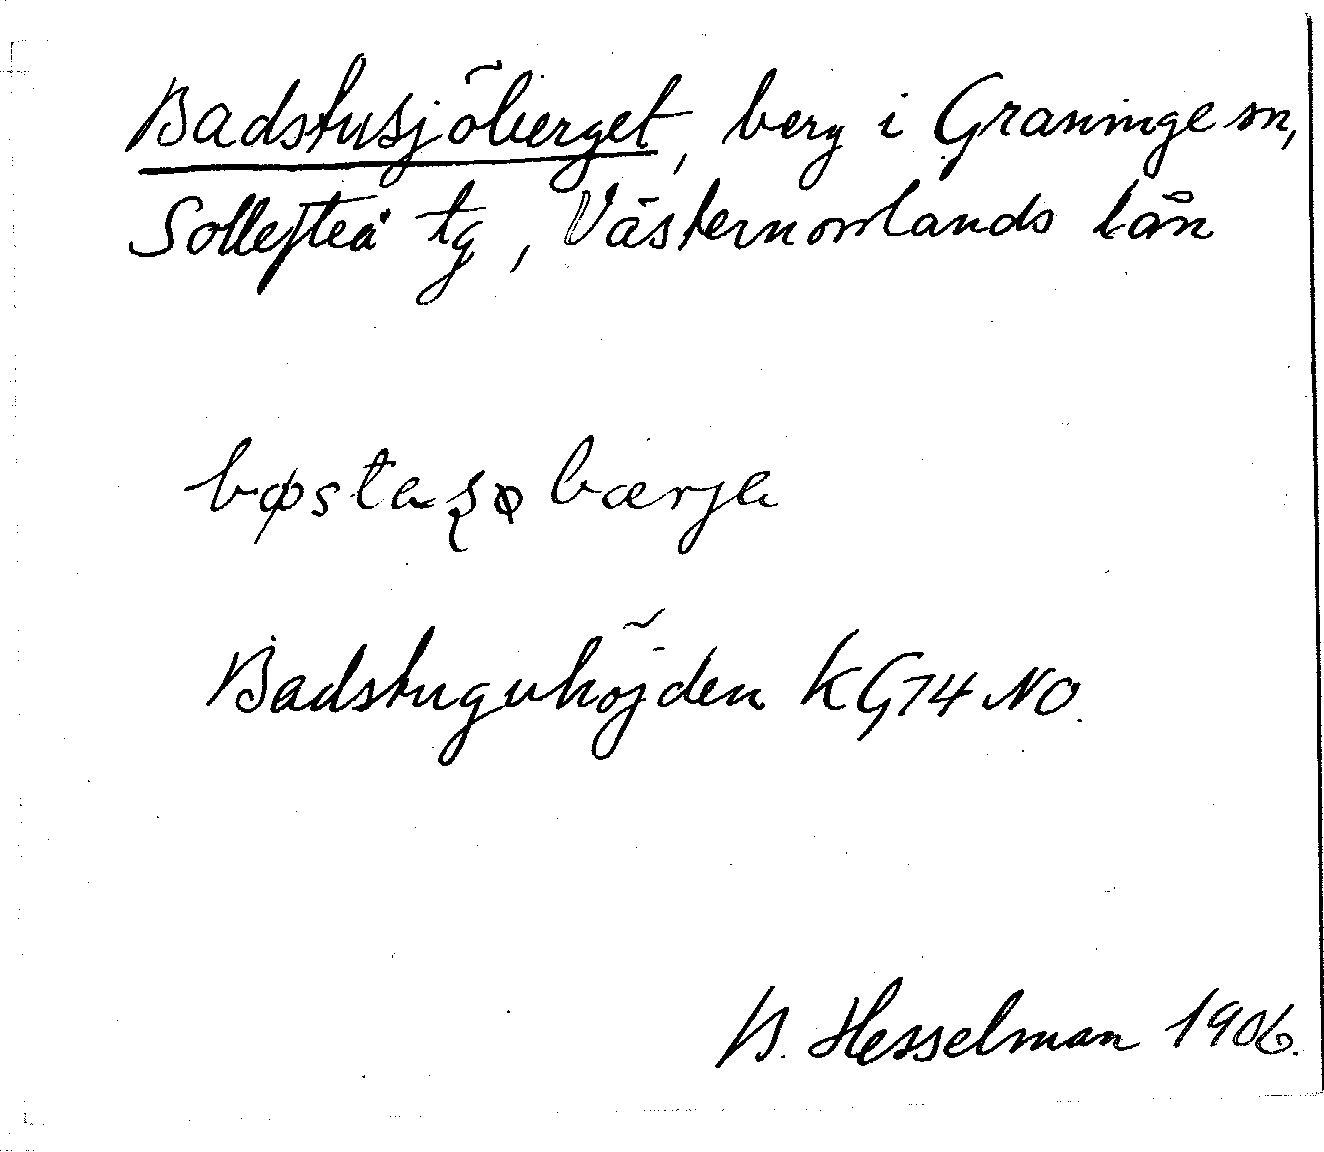 Badstusjöberget, berg i Graninge sn,
Sollefteå tg, Västernorrlands län
bøstaʂø bærja
Badstuguhöjden KG74 NO.
B. Hesselman 1906.